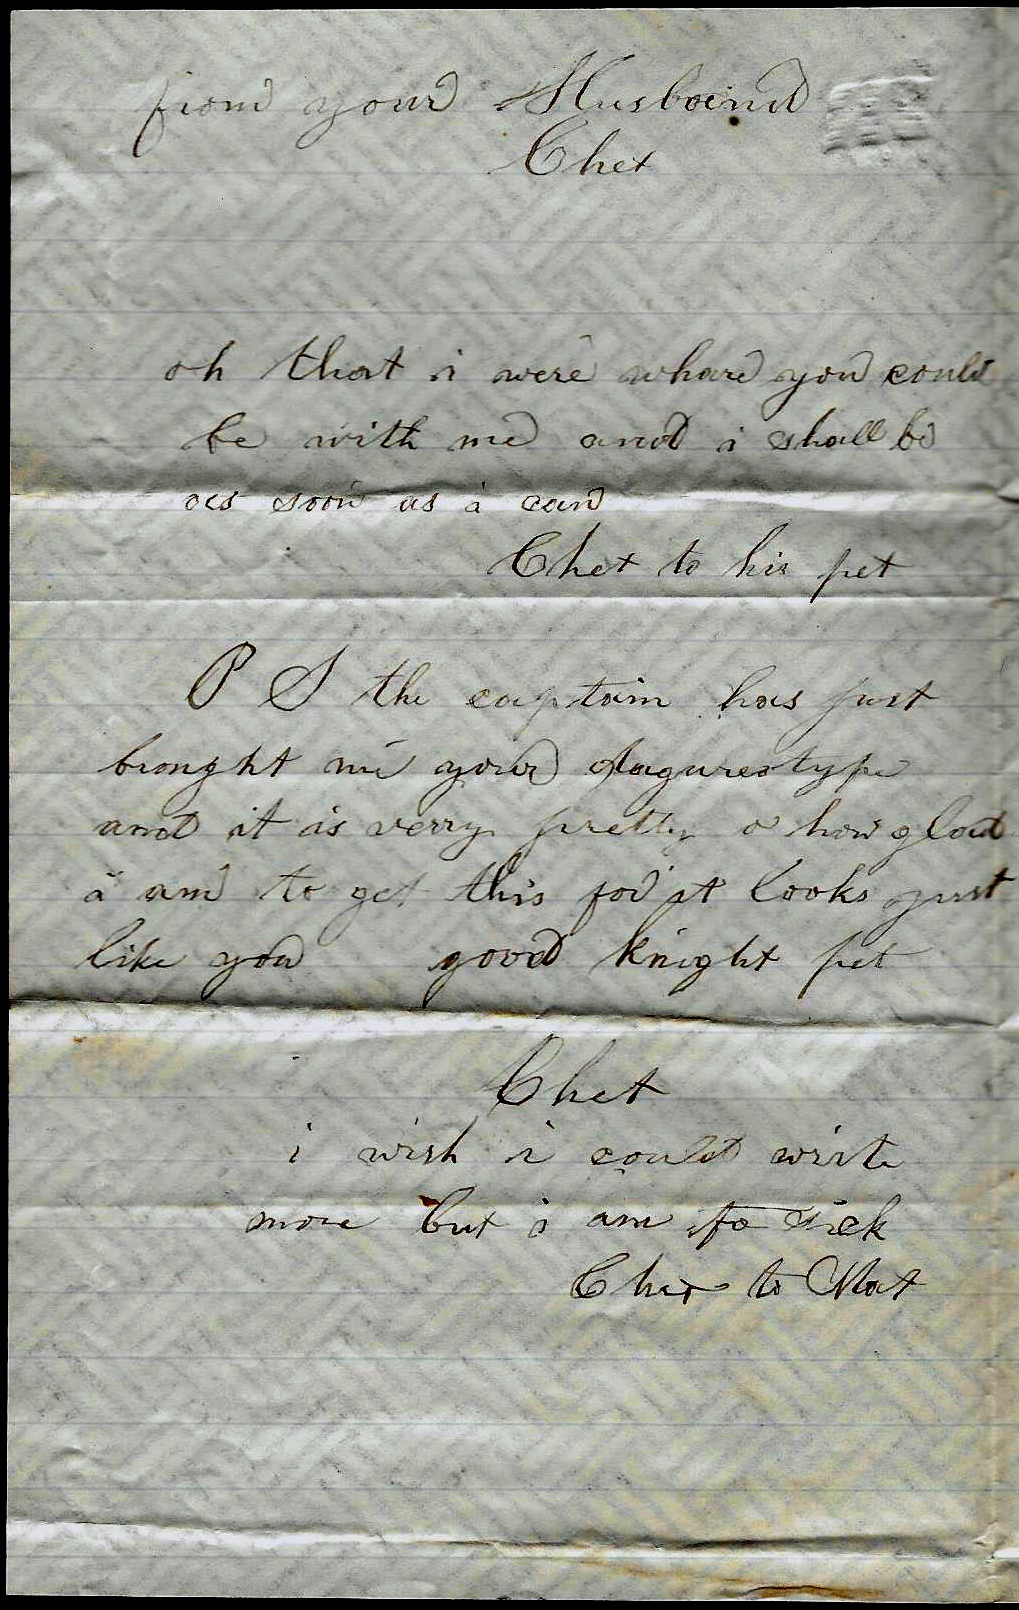 from your Husband
Chet
oh that i were whare you could
be with me and i shall be
as soon as i can
Chet to his pet
P S the captain has just
brought me your dagureotype
and it is verry pretty o how glad
i am to get this for it looks just
like you good knight pet
Chet
i wish i could write
more but i am to sick
Chet to Mat